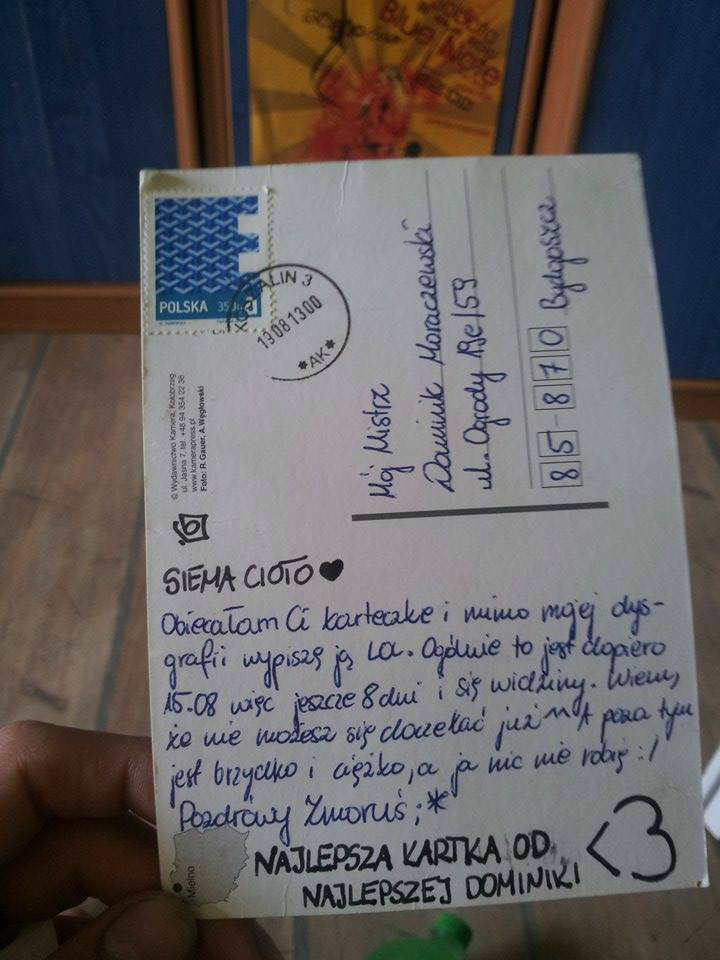 Blue Note
POLSKA 350g
ALIN 3
19 08 13 00
*AK*
© Wydawnictwo Kamera, Kołobrzeg
ul. Jasna 7, tel. +48 94 354 22 36
www.kamerapress.pl
Foto: R. Gauer, A. Węglowski
Mój Mistrz
Dominik Moraczewski
ul. Ogrody
85-870 Bydgoszcz
SIEMA CIOTO ♥
Obiecałam Ci karteczkę i mimo mojej dys-
grafii wypiszę ją. Ogólnie to jest dopiero
15.08 więc jeszcze 8 dni i się widzimy. Wiem,
że nie możesz się doczekać już ^^ A poza tym
jest brzydko i ciężko, a ja nic nie robię :/
Pozdrawy Zmoruś ;*
Mielno
NAJLEPSZA KARTKA OD
NAJLEPSZEJ DOMINIKI
<3